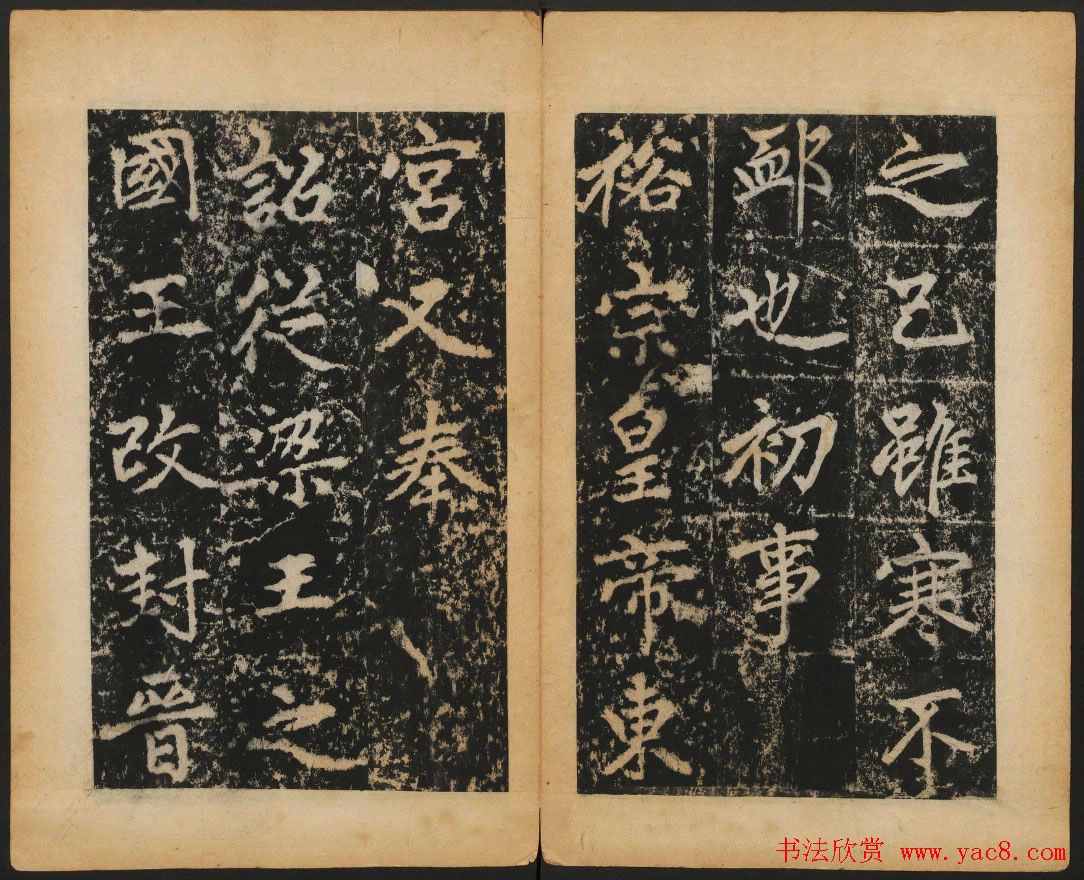 之已雖寒不
卹也初事
裕宗皇帝東
宮又奉
詔從梁王之
國王改封晉
书法欣赏 www.yac8.com